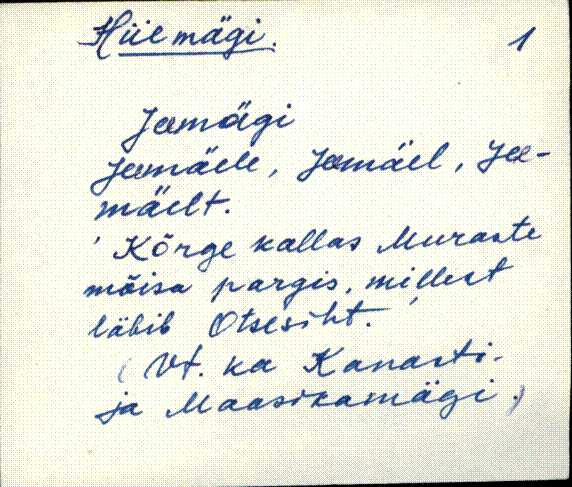 Hiiemägi. 1
Jeemägi
Jeemäele, Jeemäel, Jee-
mäelt.
'Kõrge kallas Muraste
mõisa pargis, millest
läbib Otsesiht.'
(Vt. ka Kanasti-
ja Maasikamägi.)